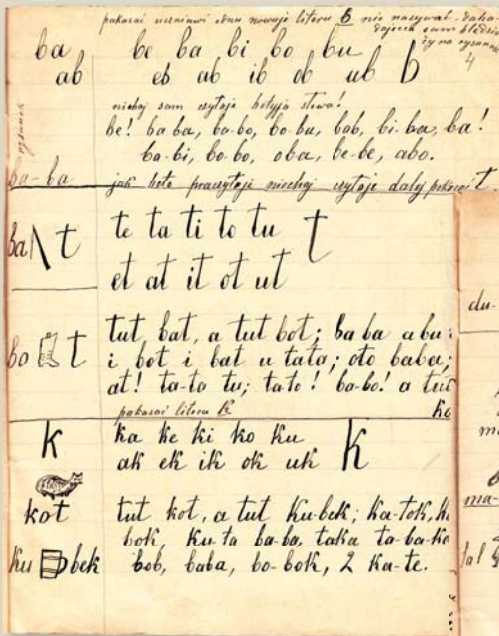 pakazać uczniawi adnu nowuju literu b nie nazywał. dalio
dajecca sam śledzić
ży na rysunek
ba be ba bi bo bu
ab eb ab ib ob ub b 4
rysunek
niechaj sam czytaje hetyja słowa!
be! ba-ba, ba-bo, bo-bu, bob, bi-ba, ba!
ba-bi, bo-bo, oba, be-be, abo.
ba-ba jak heto praczytaje niechaj czytaje dalej pokazać t.
ba t te ta ti to tu t
et at it ot ut
bo t tut bat, a tut bot; ba ba a bu
i bot i bat u tata; oto baba;
at! ta-ta tu; tato! ba-bo! a tut
pakazać literu k ku
k ka ke ki ko ku k
ak ek ik ok uk
kot tut kot, a tut ku-bek; ka-tok,
bok, ku-ta ba-ba, taka ta-ba-ka
ku bek bob, baba, bo-bok, 2 ka-te.
du-
ma-